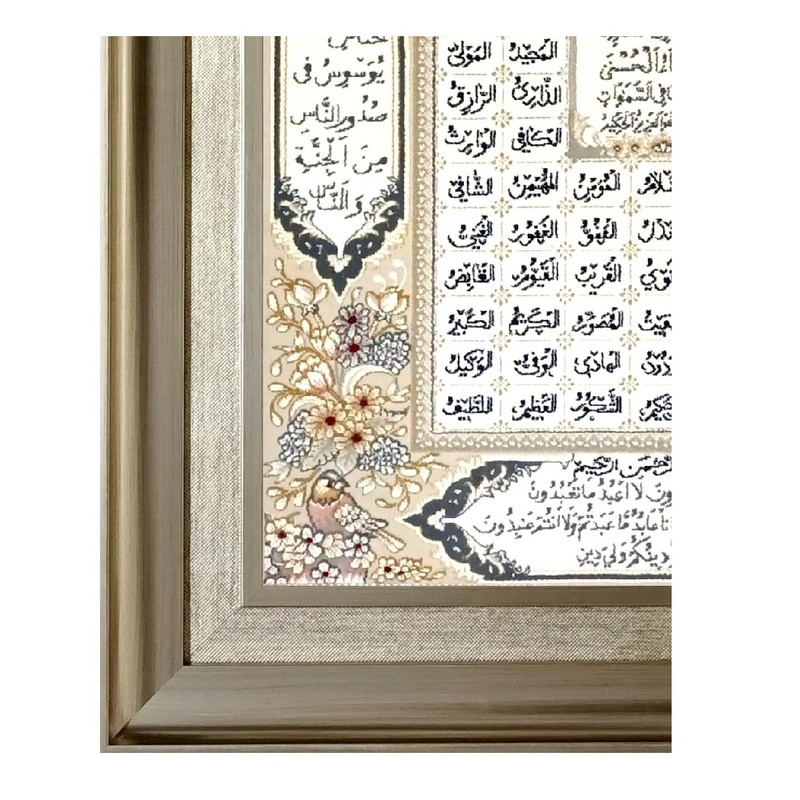 يُوَسْوِسُ فِى
صُدُورِ النَّاسِ
مِنَ الْجِنَّةِ
وَالنَّاسِ
الْمَجِيدُ الْمَوْلَىٰ
الرَّازِقُ
الْكَافِي الْوَارِثُ
الْحُسْنَىٰ
السَّمَوَاتِ
الْعَزِيزُ الْحَكِيمُ
الْمُؤْمِنُ الْمُهَيْمِنُ الشَّافِي
الْغَفُورُ الْغَنِيُّ
الْقَرِيبُ الْقَيُّومُ الْقَابِضُ
الْمُصَوِّرُ الْكَرِيمُ الْكَبِيرُ
الْهَادِي الْوَفِيُّ الْوَكِيلُ
الشَّكُورُ الْعَظِيمُ اللَّطِيفُ
الرَّحْمَنِ الرَّحِيمِ
لَا أَعْبُدُ مَا تَعْبُدُونَ
عَابِدٌ مَا عَبَدْتُمْ وَلَا أَنْتُمْ عَابِدُونَ
دِينُكُمْ وَلِيَ دِينِ